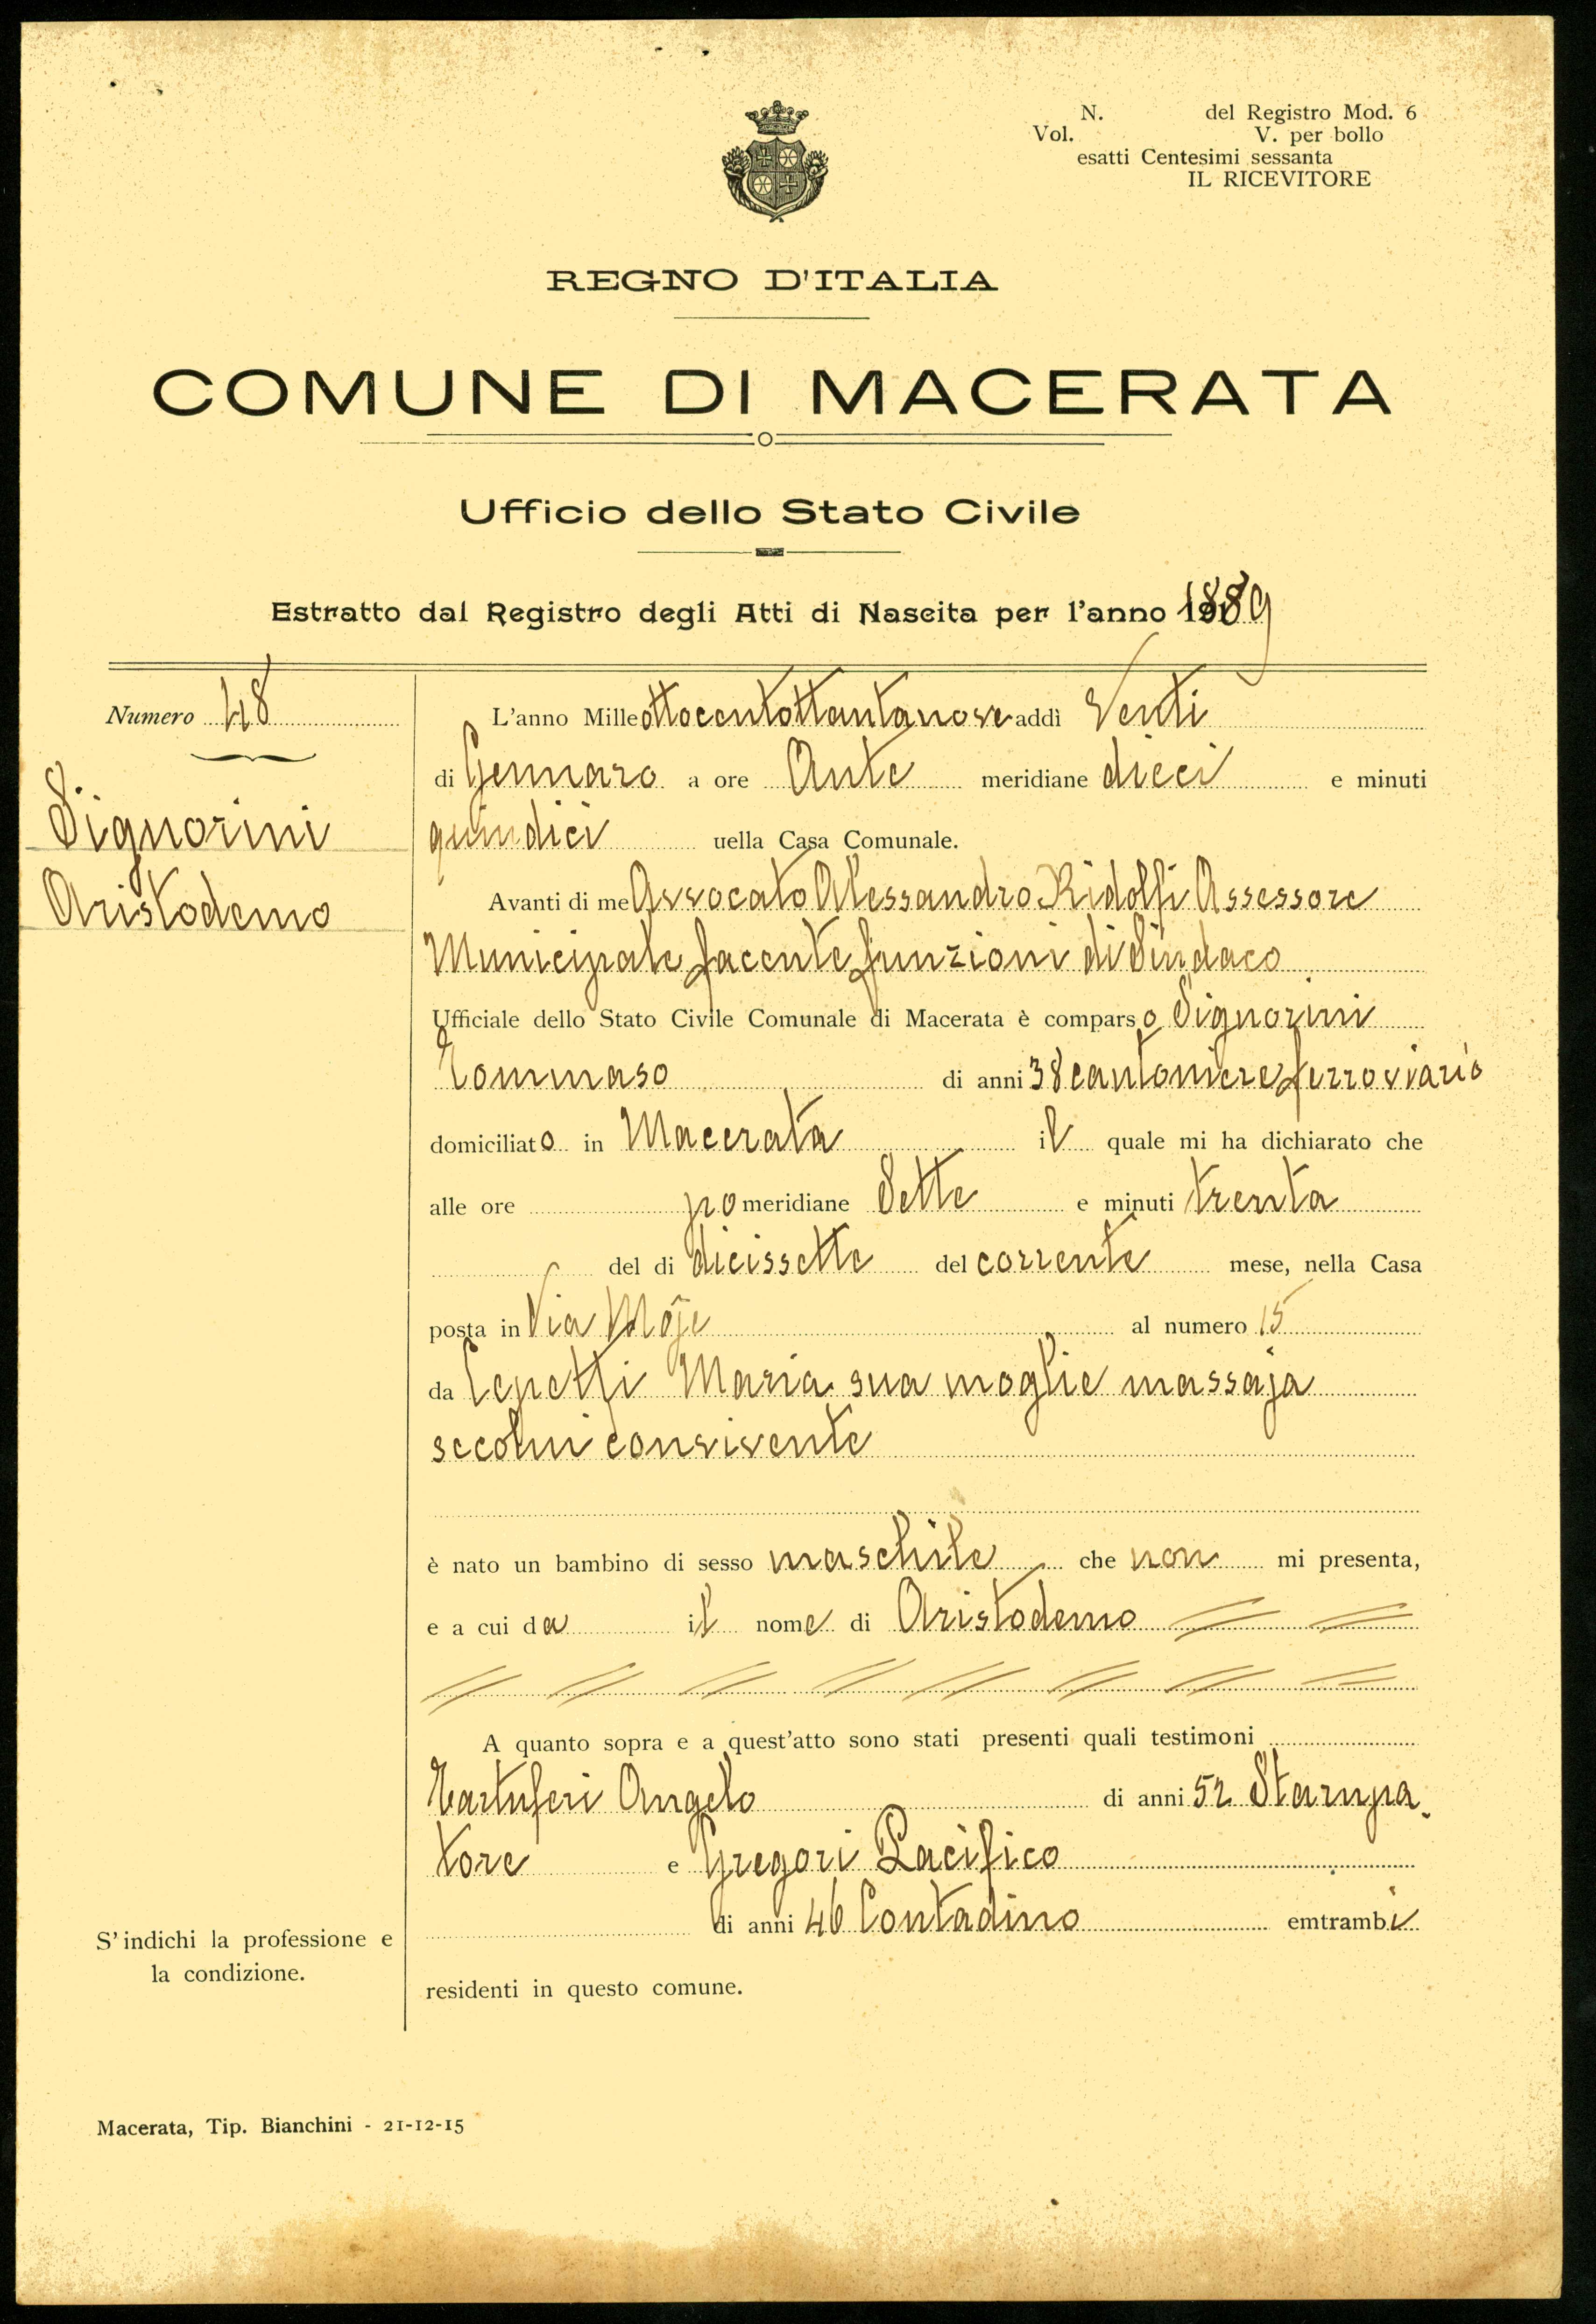 N. del Registro Mod. 6
Vol. V. per bollo
esatti Centesimi sessanta
IL RICEVITORE
REGNO D'ITALIA
COMUNE DI MACERATA
Ufficio dello Stato Civile
Estratto dal Registro degli Atti di Nascita per l'anno 1889
Numero 48
Signorini
Aristodemo
L'anno Milleottocentottantanove addì Venti
di Gennaro a ore Ante meridiane dieci e minuti
quindici uella Casa Comunale.
Avanti di me Avvocato Alessandro Ridolfi Assessore
Municipale facente funzioni di Sindaco
Ufficiale dello Stato Civile Comunale di Macerata è comparso Signorini
Tommaso di anni 38 cantoniere ferroviario
domiciliato in Macerata il quale mi ha dichiarato che
alle ore pomeridiane Sette e minuti trenta
del di dicissette del corrente mese, nella Casa
posta in Via Moje al numero 15
da Maria sua moglie massaja
secolui convivente
è nato un bambino di sesso maschile che non mi presenta,
e a cui da il nome di Aristodemo
A quanto sopra e a quest'atto sono stati presenti quali testimoni
Tartuferi Angelo di anni 52 Stampa
tore e Gregori Pacifico
di anni 46 Contadino emtrambi
residenti in questo comune.
S'indichi la professione e
la condizione.
Macerata, Tip. Bianchini - 21-12-15